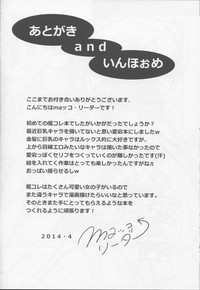 あとがき
and
いんほぉめ
ここまでお付き合いありがとうございます。
こんにちはmaッコ・リーダーです!
初めての艦コレ本でしたがいかがだったでしょうか?
最近巨乳キャラを描いてないと思い愛宕本にしましたw
金髪に巨乳キャラはルックス的に大好きですが、
上から目線エロみたいなキャラは描いた事なかったので
愛宕っぽくセリフをつくっていくのが難しかったです(汗)
絵を入れてく作業はとっても楽しかったんですがねぇ
おっぱい揺らせるしw
艦コレはたくさん可愛い女の子がいるので
また違うキャラで漫画描けたらいいなと思っています。
そのときまた手にとってもらえるような本を
つくれるように頑張ります!
2014・4
maッコ・
リーダー